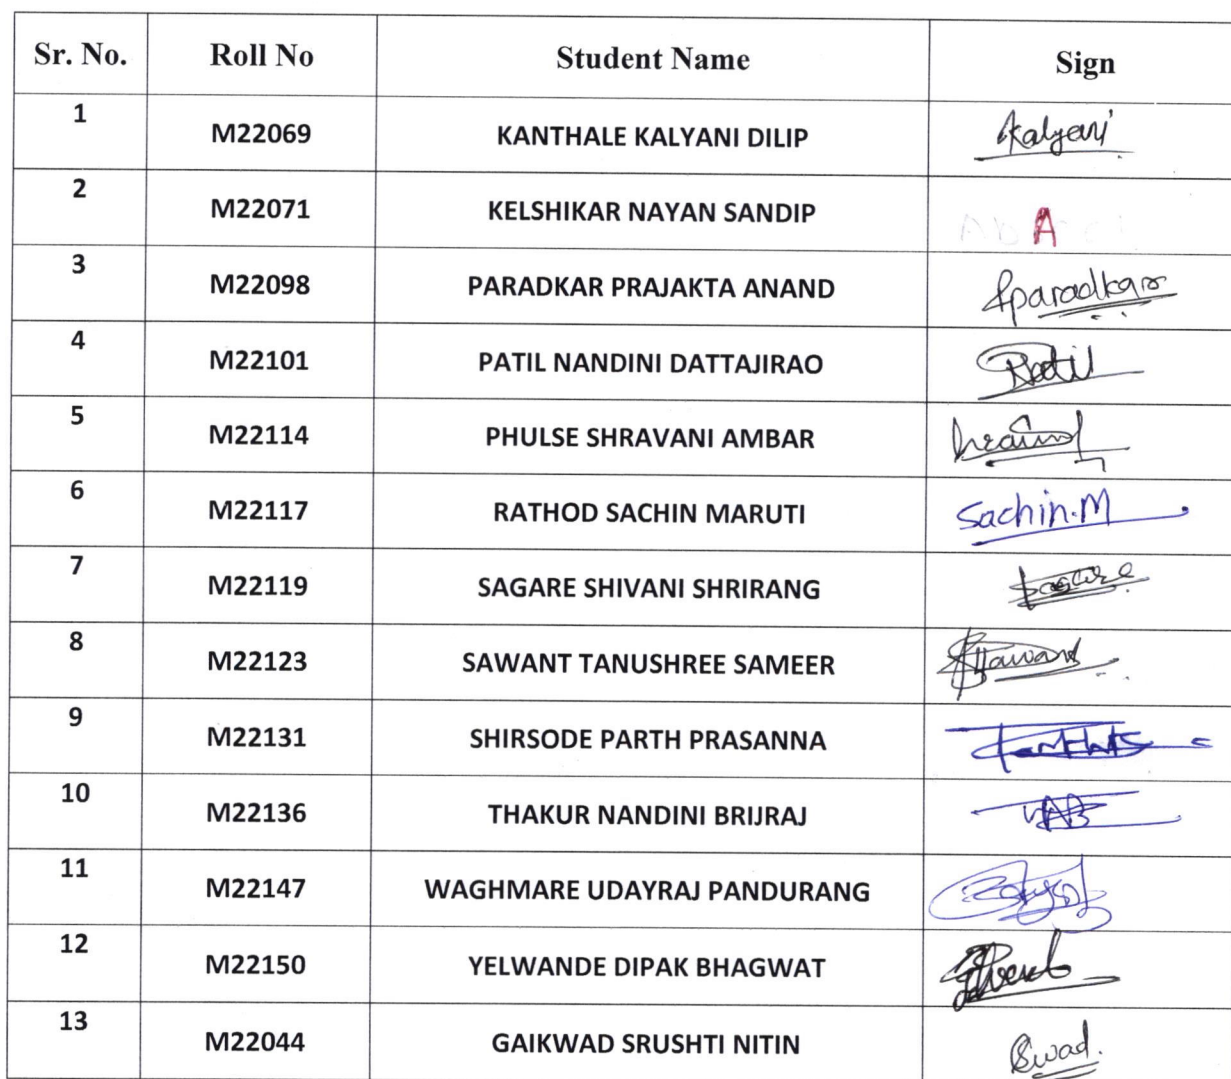 Sr. No. Roll No Student Name Sign
1 M22069 KANTHALE KALYANI DILIP Kalyani
2 M22071 KELSHIKAR NAYAN SANDIP A
3 M22098 PARADKAR PRAJAKTA ANAND Pparadkar
4 M22101 PATIL NANDINI DATTAJIRAO Patil
5 M22114 PHULSE SHRAVANI AMBAR
6 M22117 RATHOD SACHIN MARUTI Sachin.M
7 M22119 SAGARE SHIVANI SHRIRANG
8 M22123 SAWANT TANUSHREE SAMEER
9 M22131 SHIRSODE PARTH PRASANNA
10 M22136 THAKUR NANDINI BRIJRAJ
11 M22147 WAGHMARE UDAYRAJ PANDURANG
12 M22150 YELWANDE DIPAK BHAGWAT
13 M22044 GAIKWAD SRUSHTI NITIN